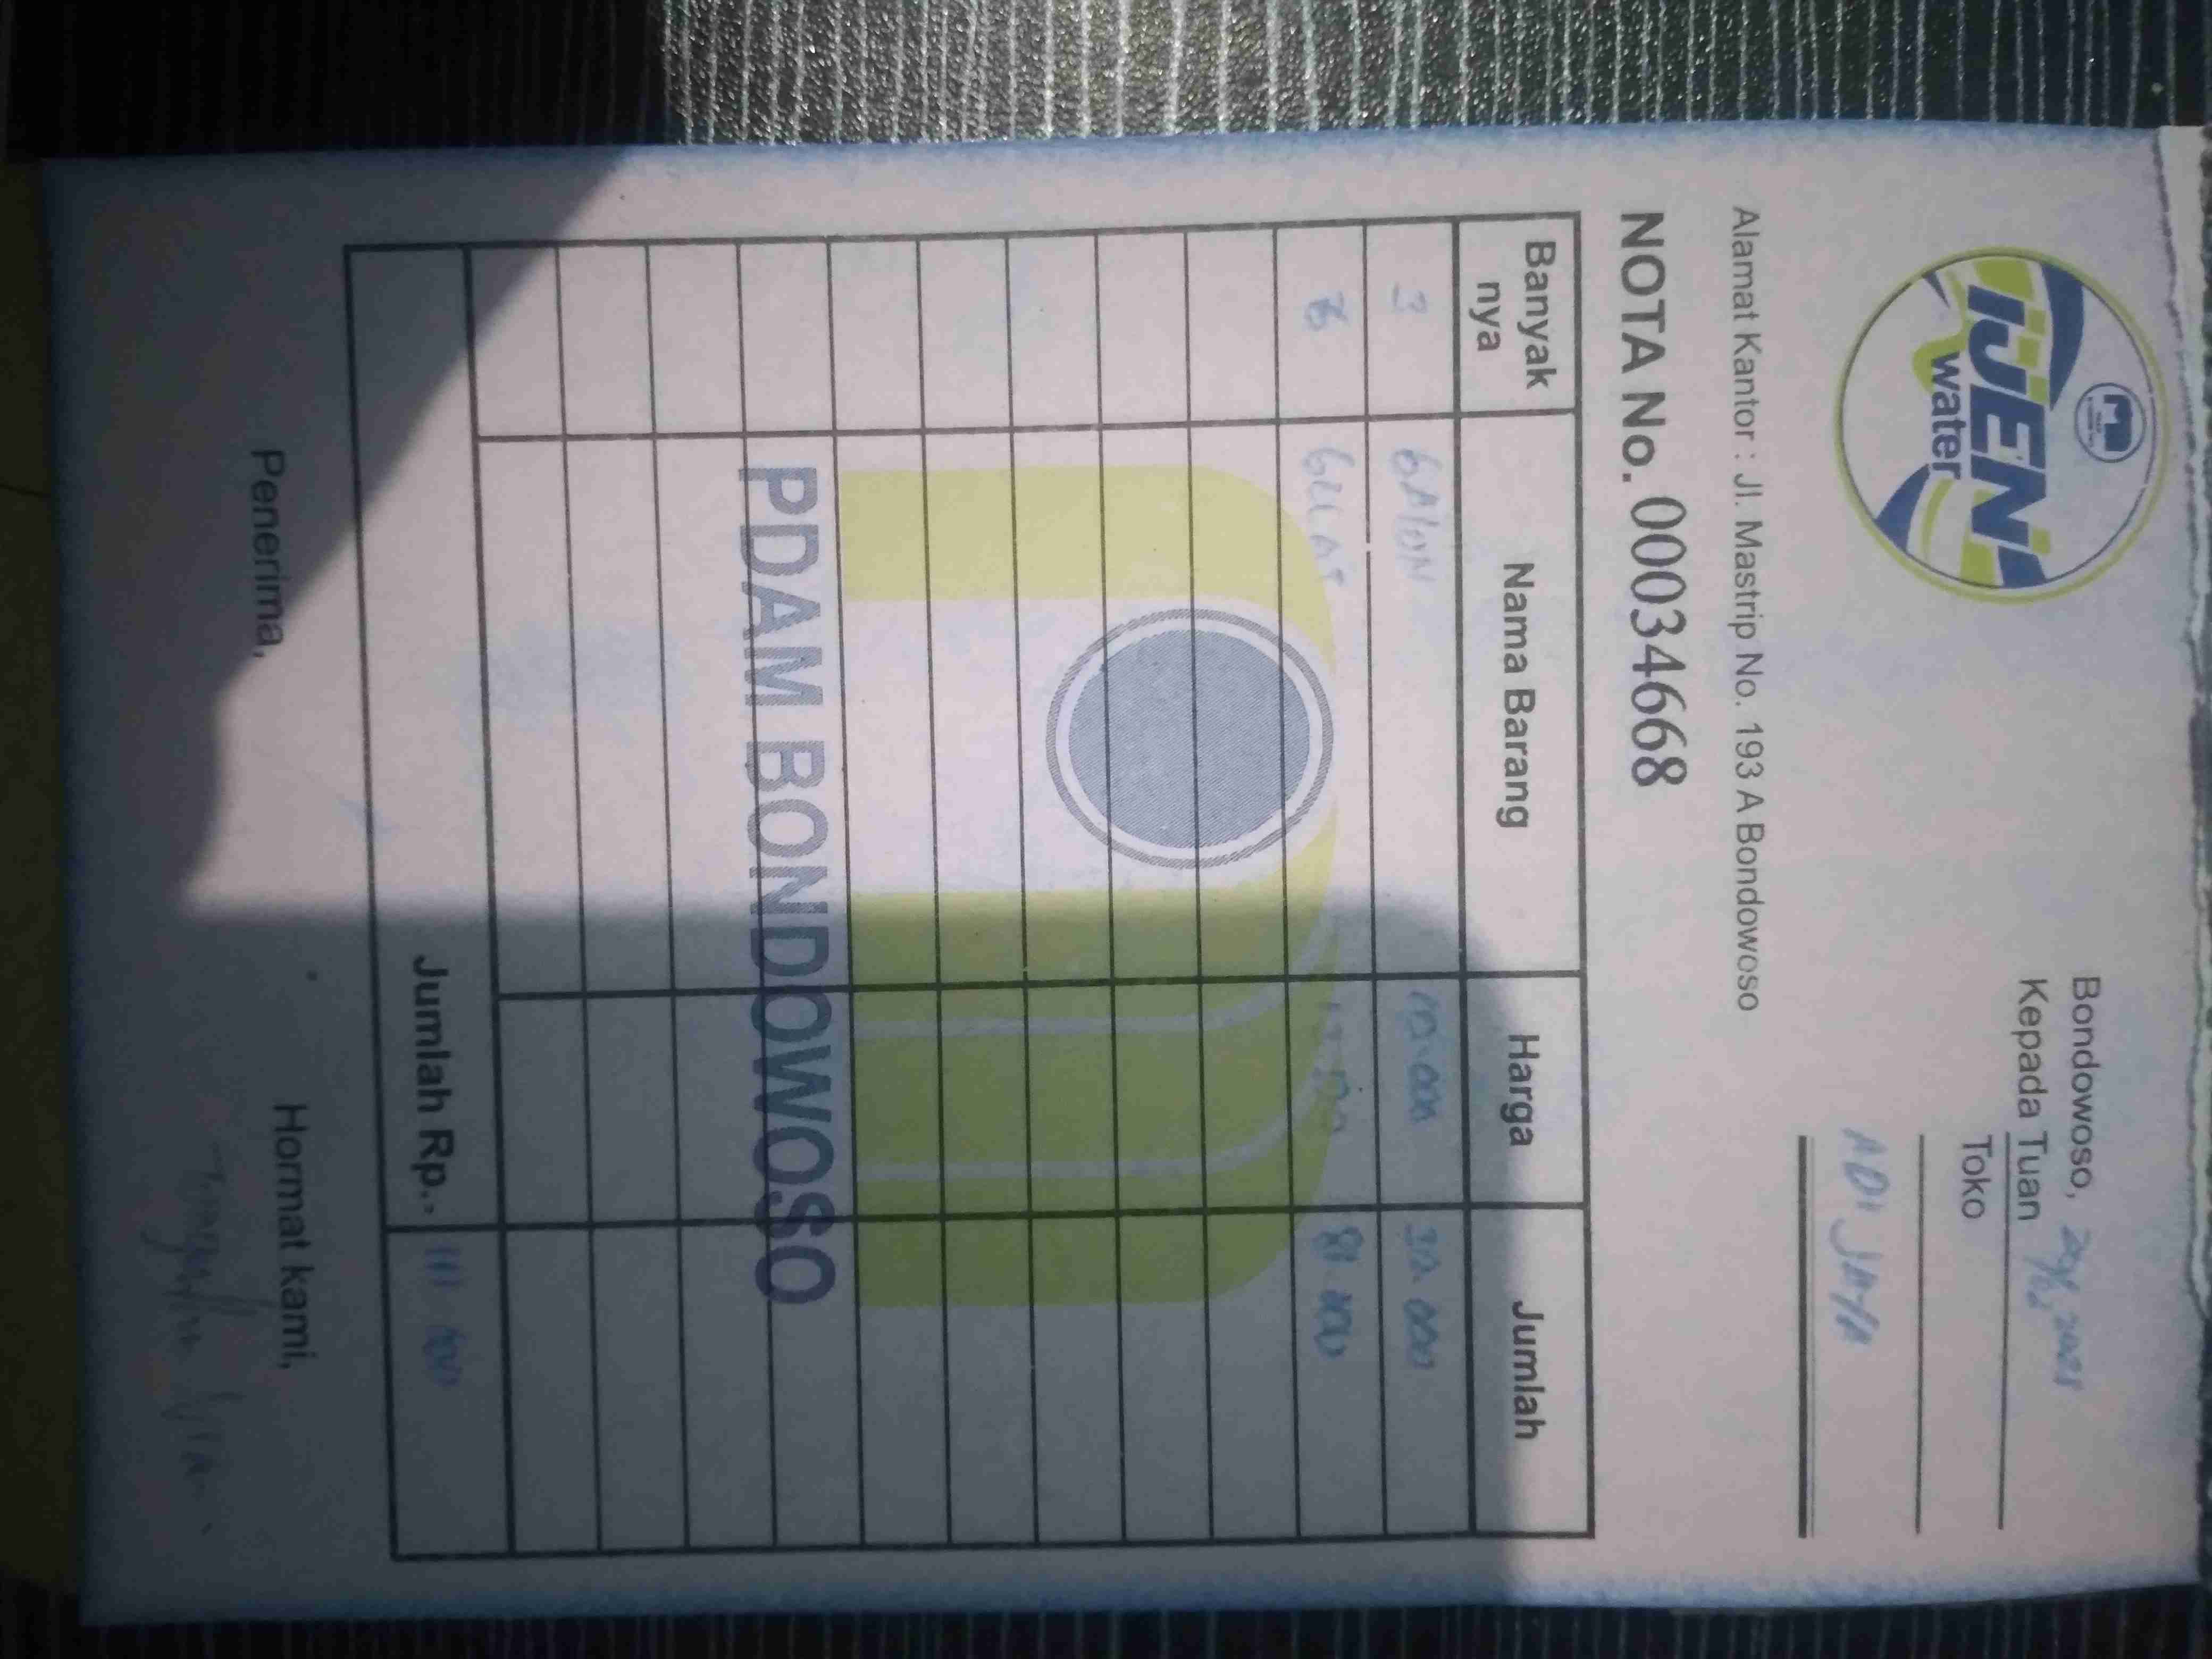 IJEN
water
Bondowoso,
Kepada Tuan
Toko
ADI JAYA
Alamat Kantor : Jl. Mastrip No. 193 A Bondowoso
NOTA No. 00034668
Banyak nya Nama Barang Harga Jumlah
3 GALON 10.000 30.000
GELAS 81.000
PDAM BONDOWOSO
Jumlah Rp.- 111.000
Penerima, Hormat kami,